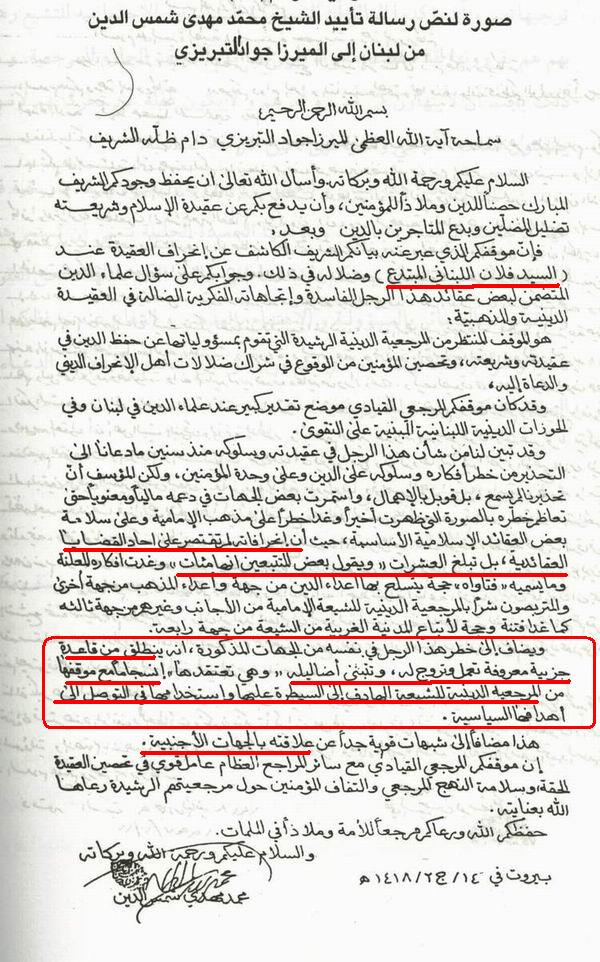 صورة لنصّ رسالة تأييد الشيخ محمّد مهدي شمس الدين
من لبنان إلى الميرزا جواد التبريزي
بسم الله الرحمن الرحيم
سماحة آية الله العظمى الميرزا جواد التبريزي دام ظلّه الشريف
السلام عليكم ورحمة الله وبركاته. وأسأل الله تعالى ان يحفظ وجودكم الشريف
المبارك حصناً للدين وملاذاً للمؤمنين، وأن يدفع بكم عن عقيدة الإسلام وشريعته
تضليل المضلّين وبدع المتاجرين بالدين وبعد،
فإنّ موقفكم الذي عبر عنه بيانكم الشريف الكاشف عن إنحراف العقيدة عند
(السيد فلان اللبناني المبتدع) وضلاله في ذلك. وجوابكم على سؤال علماء الدين
المتضمن لبعض عقائد هذا الرجل الفاسدة وإتجاهاته الفكرية الضالة في العقيدة
الدينية والمذهبية:
هو الموقف المنتظر من المرجعية الدينية الرشيدة التي تقوم بمسؤولياتها عن حفظ الدين في
عقيدته وشريعته، وتحصين المؤمنين من الوقوع في شراك ضلالات أهل الإنحراف الديني
والدعاة إليه،
وقد كان موقفكم المرجعي القيادي موضع تقدير كبير عند علماء الدين في لبنان وفي
الحوزات الدينية اللبنانية المبنية على التقوى.
وقد تبين لنا من شأن هذا الرجل في عقيدته وسلوكه منذ سنين ما دعانا الى
التحذير من خطر أفكاره وسلوكه على الدين وعلى وحدة المؤمنين، ولكن المؤسف أنّ
تحذيرنا لم يسمع، بل قوبل بالإهمال، واستمرت بعض الجهات في دعمه مالياً ومعنوياً حتى
تعاظم خطره بالصورة التي ظهرت أخيراً وغدا خطراً على مذهب الإمامية وعلى سلامة
بعض العقائد الإسلامية الأساسية، حيث أن إنحرافاته لم تقتصر على احاد القضايا
العقائدية، بل تبلغ العشرات «ويقول بعض المتتبعين انها مئات» وغدت أفكاره المعلنة
وما يسميه «فتاواه» حجة يتسلح بها أعداء الدين من جهة وأعداء المذهب من جهة أخرى
والمتربصون شراً بالمرجعية الدينية للشيعة الإمامية من الأجانب وغيرهم من جهة ثالثة
كما غدا فتنة وحجة لأتباع المدنية الغربية من الشيعة من جهة رابعة.
ويضاف إلى خطر هذا الرجل في نفسه من الجهات المذكورة، أنه ينطلق من قاعدة
حزبية معروفة تعمل وتروج له، وتتبنى أضاليله «وهي تعتقدها» إنسجاماً مع موقفها
من المرجعية الدينية للشيعة الهادف إلى السيطرة عليها واستخدامها في التوصل الى
أهدافها السياسية.
هذا مضافاً إلى شبهات قوية جداً عن علاقته بالجهات الأجنبية.
إن موقفكم المرجعي القيادي مع سائر المراجع العظام عامل قوي في تحصين العقيدة
الحقة، وسلامة النهج المرجعي والتفاف المؤمنين حول مرجعيتهم الرشيدة رعاها
الله بعنايته.
حفظكم الله ورعاكم مرجعاً للأمة وملاذاً في الملمات.
والسلام عليكم ورحمة الله وبركاته
بيروت في ١٤/ج٢/١٤١٨ هـ
محمد مهدي شمس الدين